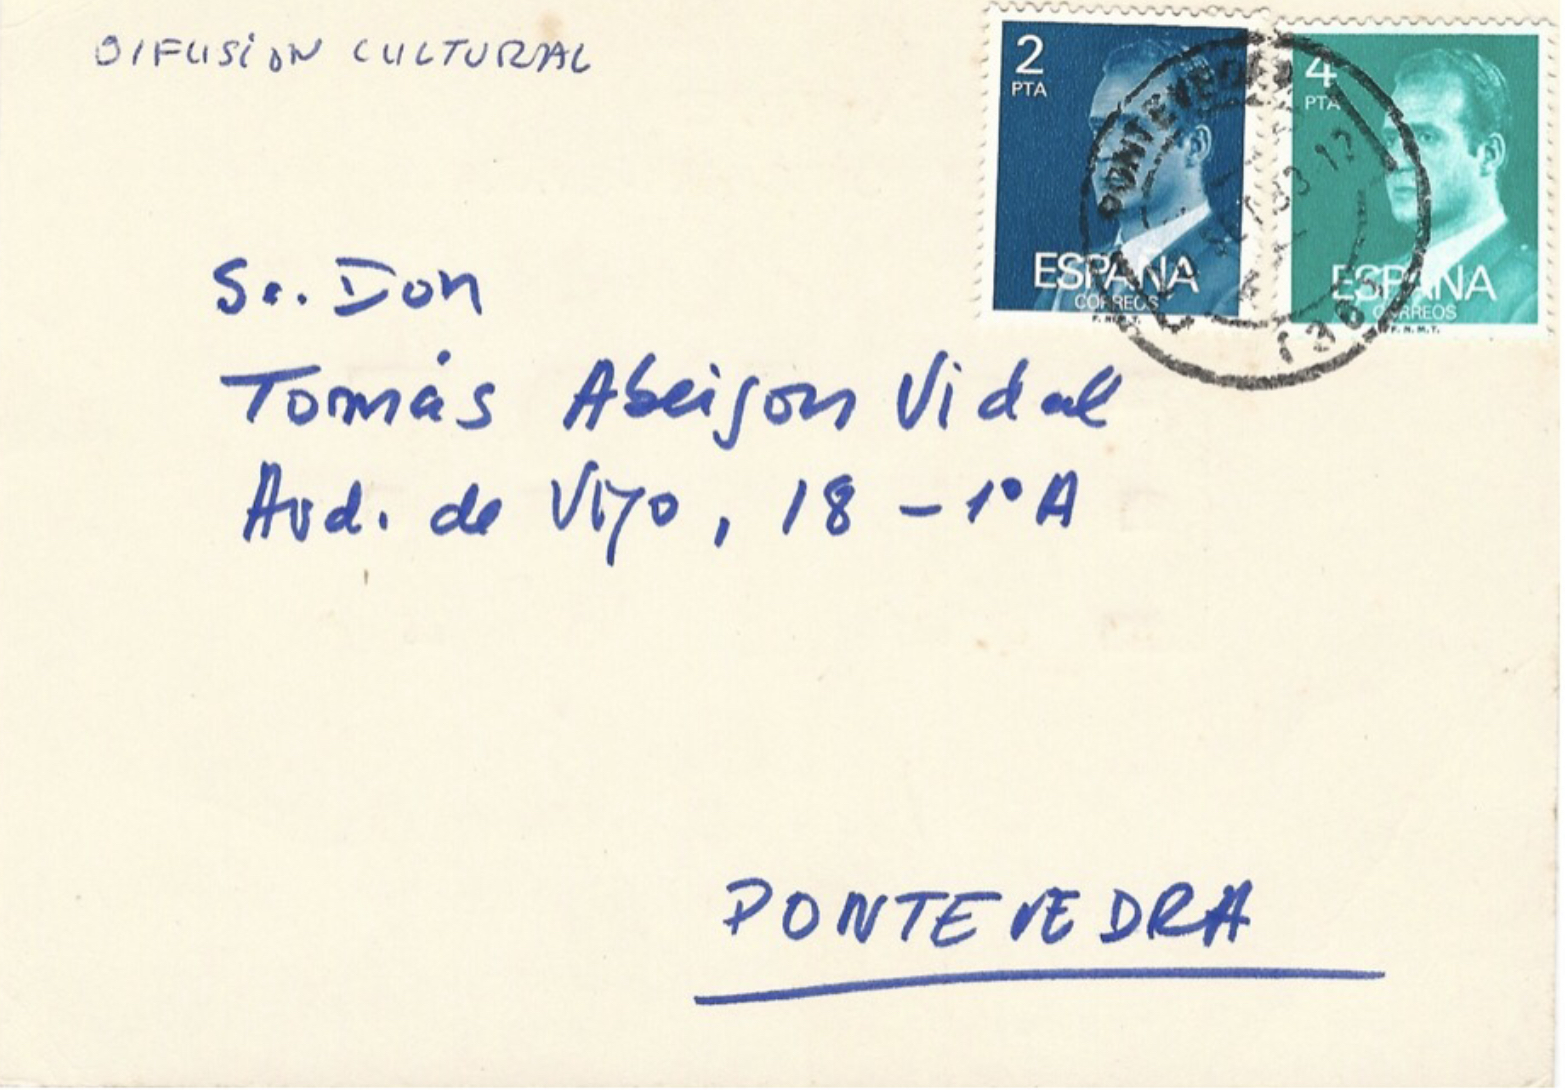 DIFUSIÓN CULTURAL
2
PTA
ESPAÑA
CORREOS
F.N.M.T.
4
PTA
ESPAÑA
CORREOS
F.N.M.T.
PONTEVEDRA
83 12
Sr. Don
Tomás Abeigon Vidal
Avd. de Vigo, 18 - 1º A
PONTEVEDRA